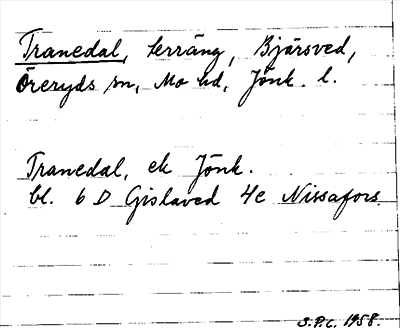 Tranedal, terräng, Bjärsved,
Öreryds sn, Mo hd, Jönk. l.
Tranedal, ek Jönk.
bl. 6 D Gislaved 4e Nissafors
S.P.C. 1958.